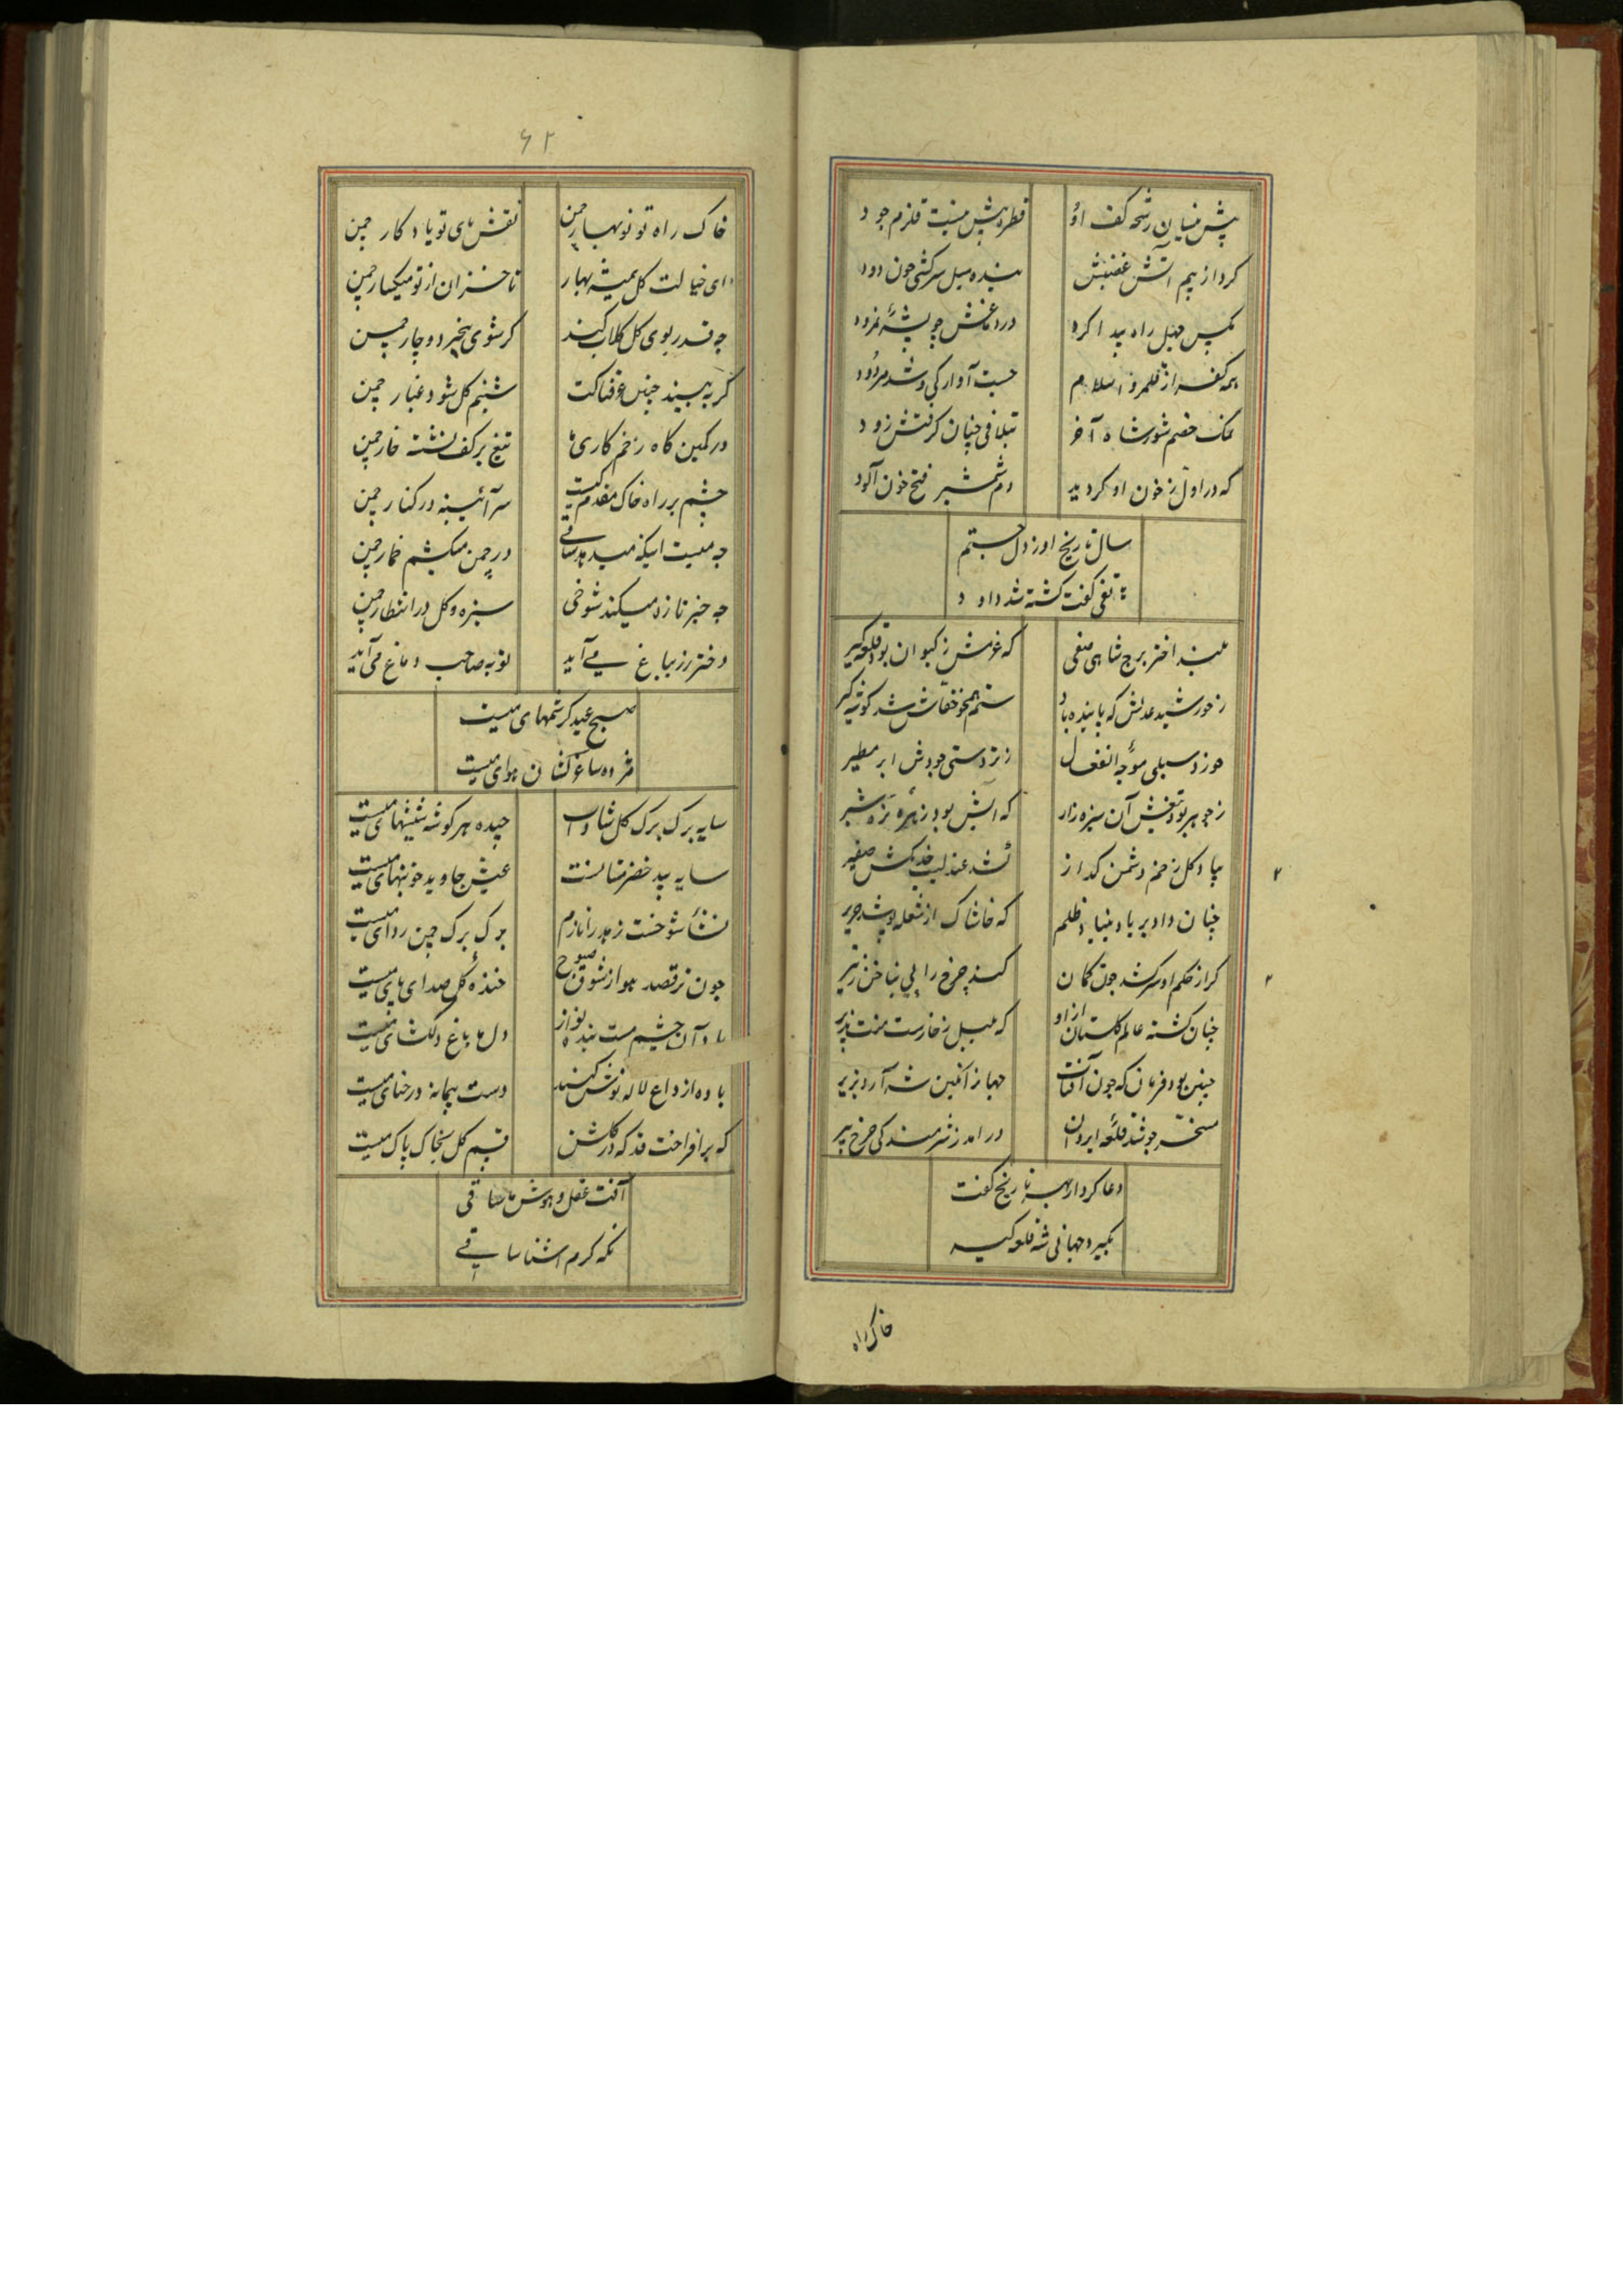 پیش نیسان رشحه کف او قطره پیش منیت قلزم جود
کرد از بیم آتش غضبش بنده میل سرکشی چون دود
مکس جهل راه پیدا کرد در دماغش چو پشه نمرود
همه کفر از قلمرو اسلام جست آوارکی و شد مردود
نمک خصم شور شاه آخر بتلافی چنان کرفتش زود
که در اول ز خون او کردید دم شمشیر فتح خون آلود
سال تاریخ او ز دل جستم
هاتفی کفت کشته شد داود
بلند اختر برج شاهی صفی که عزمش ز کیوان بود قلعه کیر
ز خورشید عدلش که پاینده باد ستم همچو خفاش شد کوشه کیر
خورد سیلی موجه انفعال ز تردستی جودش ابر مطیر
ز جوهر بود تیغش آن سبزه زار که آبش بود زهره نره شیر
بیاد کل زخم دشمن کداز شد عندلیب خدنکش صفیر
چنان داد بر باد بنیاد ظلم که خاشاک از شعله پوشد حریر
کر از حکم او سر کشد چون کمان کند چرخ را پی بناخن ز تیر
چنان کشته عالم کلستان از او که بلبل ز خارست منت پذیر
چنین بود فرمان که چون آفتاب جهان از نکین شه آرد بزیر
مسخر چو شد قلعه ایروان در آمد ز شرمندکی چرخ پیر
دعا کرد از بهر تاریخ کفت
بکیرد جهانی شه قلعه کیر
خاک راه
۶۲
خاک راه تو نوبهار چمن نقش پای تو یادکار چمن
ای خیالت کل همیشه بهار تا خزان از تو میکسار چمن
چه قدر بوی کل کلاب کند کر شوی بیخبر دوچار چمن
کر به بیند جبین عرقناکت شبنم کل شود غبار چمن
در کمین کاه زخم کاری ها تیغ بر کف نشسته خار چمن
چشم بر راه خاک مقدم کیست سر آئینه در کنار چمن
چه میست اینکه میدهد ساقی در چمن میکشم خمار چمن
چه خبر تازه میکند شوخی سبزه و کل در انتظار چمن
دختر رز بباغ می آید توبه صاحب دماغ می آید
صبح عید کرشمهای میست
مژده ساغر کشان هوای میست
سایه برک برک کل شاداب چیده هر کوشه شیشهای میست
سایه بید خضر مستانست عیش جاوید خونبهای میست
نشأ شوخست زهد را نازم برک برک چمن ردای میست
چون نرقصد هوا ز شوق صبوح خنده کل صدای پای میست
یاد آن چشم مست بنده نواز دل ما باغ دلکشای میست
باده از داغ لاله نوش کنید دست پیمانه در حنای میست
که بر افراخت قد که در کلشن قسم کل بخاک پای میست
آفت عقل و هوش ما ساقی
نکه کرم آشنا ساقی